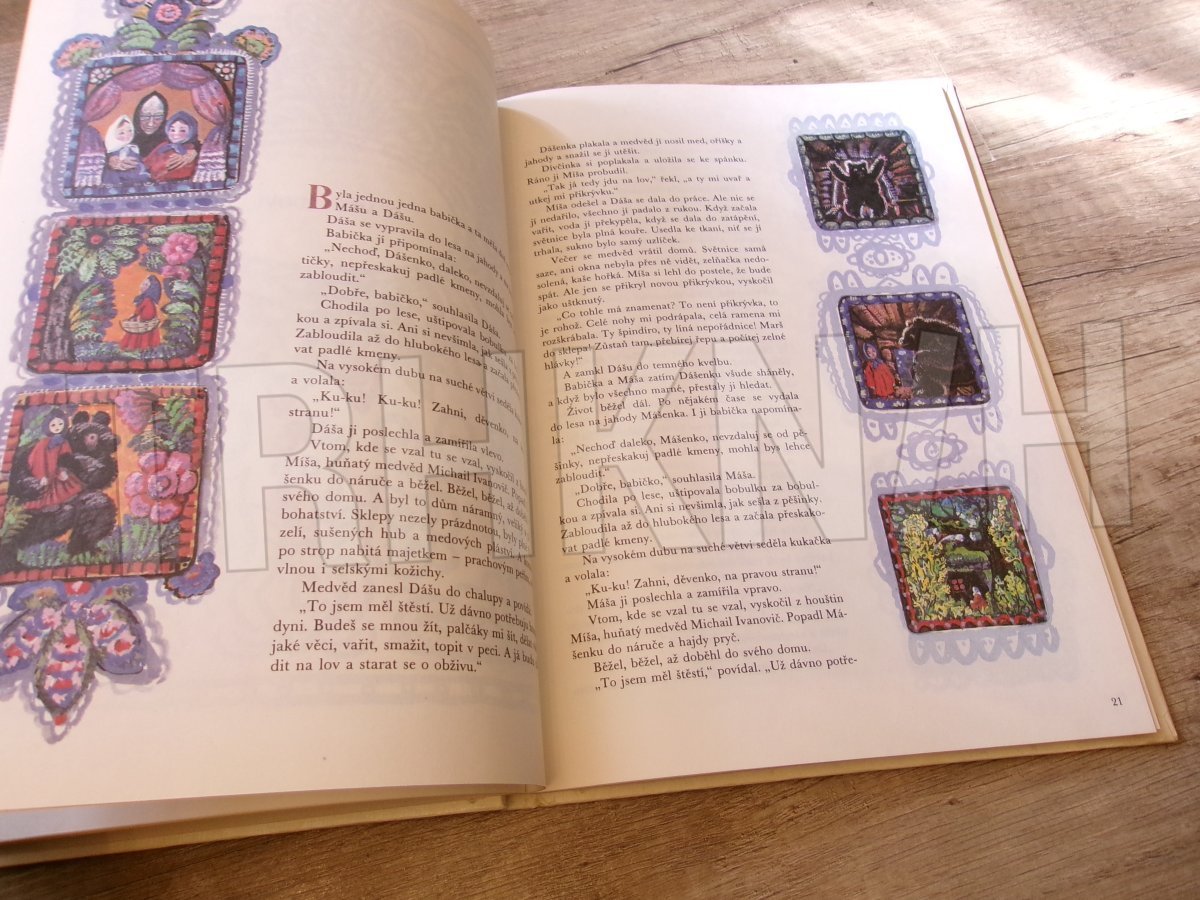 Byla jednou jedna babička a ta měla dvě
Mášu a Dášu.
Dáša se vypravila do lesa na jahody a
Babička jí připomínala:
„Nechoď, Dášenko, daleko, nevzdaluj se
tičky, nepřeskakuj padlé kmeny, mohla
zabloudit."
„Dobře, babičko," souhlasila Dáša.
Chodila po lese, uštipovala bobulku
kou a zpívala si. Ani si nevšimla, jak sešla
Zabloudila až do hlubokého lesa a začala přeskako-
vat padlé kmeny.
Na vysokém dubu na suché větvi seděla
a volala:
„Ku-ku! Ku-ku! Zahni, děvenko, na
stranu!"
Dáša ji poslechla a zamířila vlevo.
Vtom, kde se vzal tu se vzal, vyskočil
Míša, huňatý medvěd Michail Ivanovič. Popadl
šenku do náruče a běžel. Běžel, běžel, až
svého domu. A byl to dům náramný, veliký
bohatství. Sklepy nezely prázdnotou, byly
zelí, sušených hub a medových pláství. A
po strop nabitá majetkem – prachovým
vlnou i selskými kožichy.
Medvěd zanesl Dášu do chalupy a povídá:
„To jsem měl štěstí. Už dávno potřebuju
dyni. Budeš se mnou žít, palčáky mi šít,
jaké věci, vařit, smažit, topit v peci. A já budu
dit na lov a starat se o obživu."
Dášenka plakala a medvěd jí nosil med, oříšky a
jahody a snažil se ji utěšit.
Divčinka si poplakala a uložila se ke spánku.
Ráno ji Míša probudil.
„Tak já tedy jdu na lov," řekl, „a ty mi uvař a
utkej mi přikrývku."
Míša odešel a Dáša se dala do práce. Ale nic se
jí nedařilo, všechno jí padalo z rukou. Když začala
vařit, voda jí překypěla, když se dala do zatápění,
světnice byla plná kouře. Usedla ke tkaní, niť se jí
trhala, sukno bylo samý uzlíček.
Večer se medvěd vrátil domů. Světnice samá
saze, ani okna nebyla přes ně vidět, zelňačka nedo-
solená, kaše hořká. Míša si lehl do postele, že bude
spát. Ale jen se přikryl novou přikrývkou, vyskočil
jako uštknutý.
„Co tohle má znamenat? To není přikrývka, to
je rohož. Celé nohy mi podrápala, celá ramena mi
rozškrábala. Ty špindíro, ty líná nepořádnice! Marš
do sklepa! Zůstaň tam, přebírej řepu a počítej zelné
hlávky!"
A zamkl Dášu do temného kvelbu.
Babička a Máša zatím Dášenku všude sháněly,
a když bylo všechno marné, přestaly ji hledat.
Život běžel dál. Po nějakém čase se vydala
do lesa na jahody Mášenka. I jí babička napomína-
la:
„Nechoď daleko, Mášenko, nevzdaluj se od pě-
šinky, nepřeskakuj padlé kmeny, mohla bys lehce
zabloudit."
„Dobře, babičko," souhlasila Máša.
Chodila po lese, uštipovala bobulku za bobul-
kou a zpívala si. Ani si nevšimla, jak sešla z pěšinky.
Zabloudila až do hlubokého lesa a začala přeskako-
vat padlé kmeny.
Na vysokém dubu na suché větvi seděla kukačka
a volala:
„Ku-ku! Zahni, děvenko, na pravou stranu!"
Máša ji poslechla a zamířila vpravo.
Vtom, kde se vzal tu se vzal, vyskočil z houštin
Míša, huňatý medvěd Michail Ivanovič. Popadl Má-
šenku do náruče a hajdy pryč.
Běžel, běžel, až doběhl do svého domu.
„To jsem měl štěstí," povídal. „Už dávno potře-
21